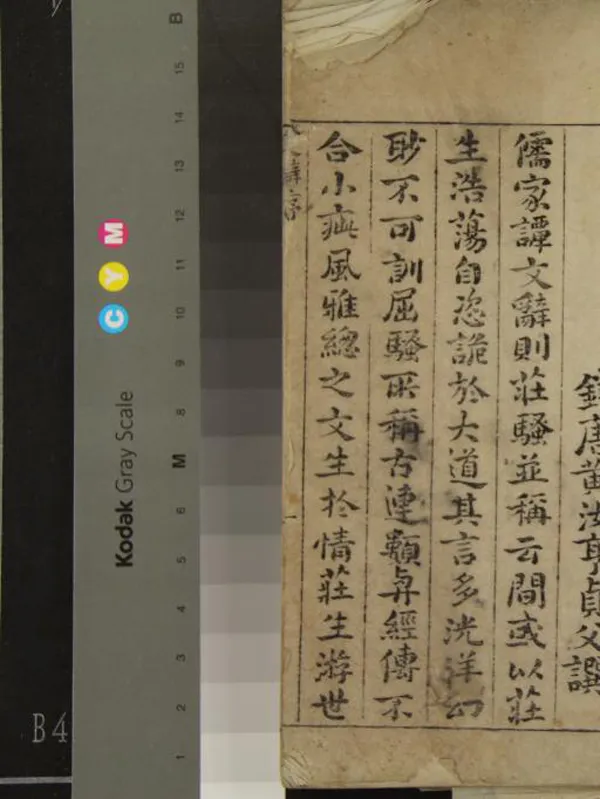 錢唐黃汝亨貞父譔
儒家譚文辭則莊騷並稱云間或以莊
生浩蕩自恣詭於大道其言多洸洋幻
眇不可訓屈騷所稱古連類與經傳不
合小疵風雅總之文生於情莊生游世
辭序
Kodak Gray Scale
C Y M
B
15
14
13
12
11
10
9
8
M
6
5
4
3
2
1
B4